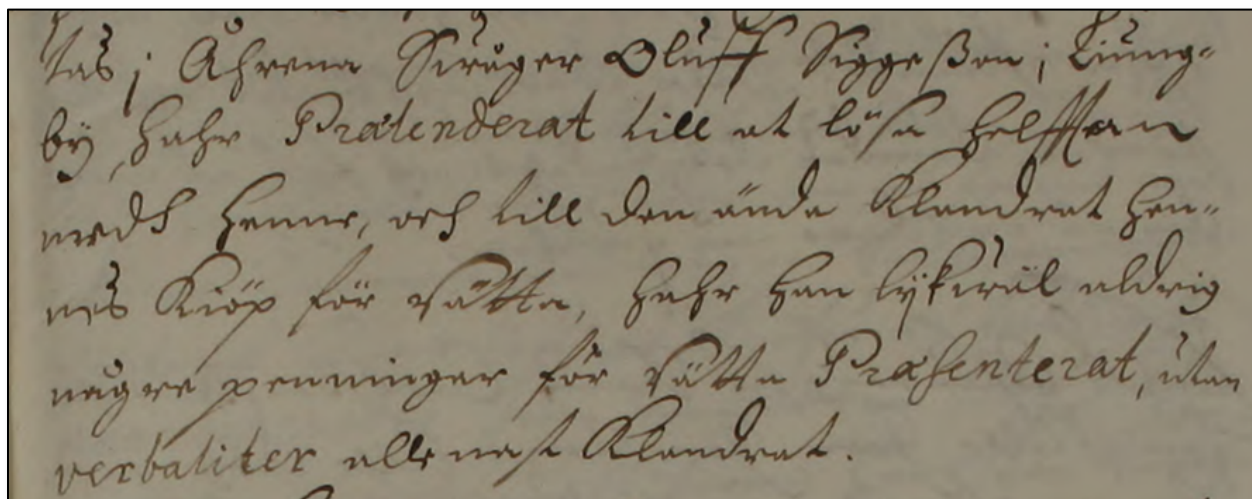 tas; Åhrena Swåger Oluff Siggeßon i Liung-
bÿ, hahr Prætenderat till at lösa helfften
medh henne, och till den ända Klandrat hen-
nes Kiöp för rätta, hahr han lÿkwäl aldrig
någre penningar för rätta Præsenterat, utan
verbaliter allenast Klandrat.